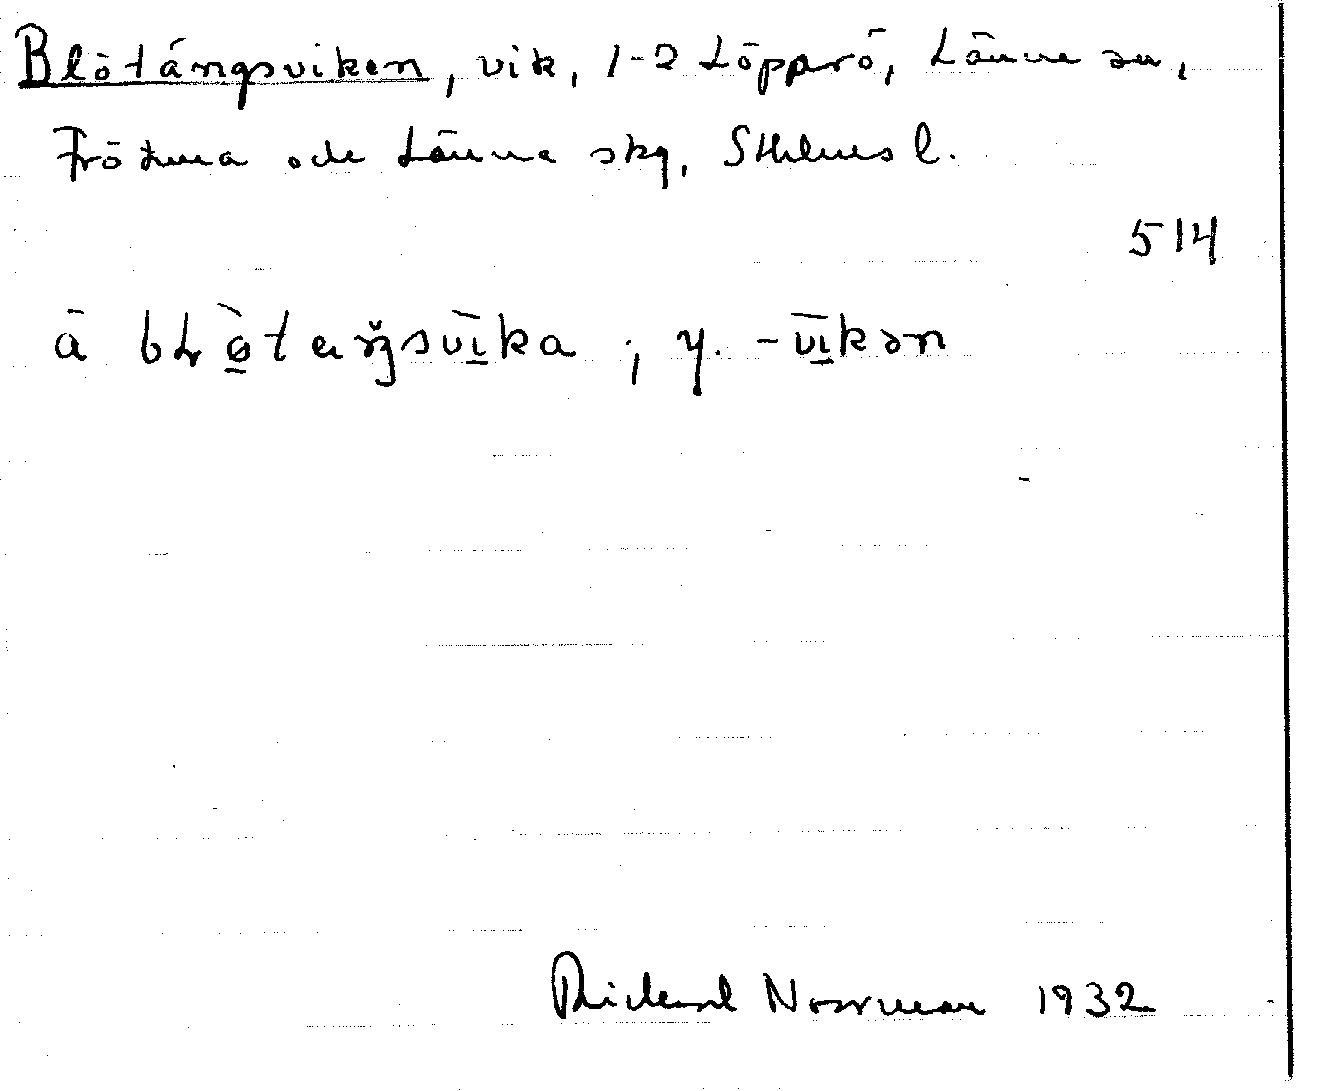 Blötängsviken, vik, 1-2 Löpparö, Länna sn,
Frötuna och Länna skg, Sthlms l.
514
å bLø̀taŋsvīka ; y. -vīkən
Rickard Norrman 1932